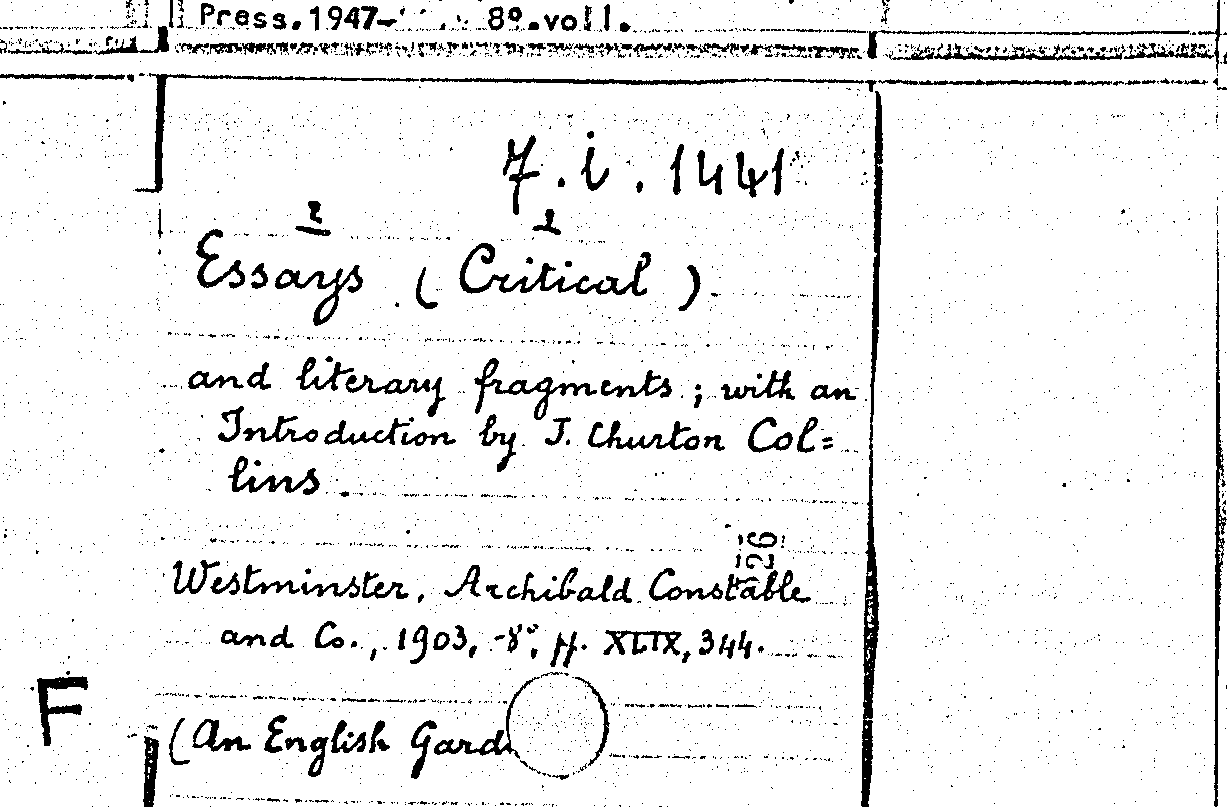 Press.1947- 8º.voll.
7.i.1441
2 1
Essays (Critical).
and literary fragments; with an
Introduction by J. Churton Col=
lins.
26
Westminster, Archibald Constable
and Co., 1903, -8º, pp. XLIX, 344.
F
(An English Gard